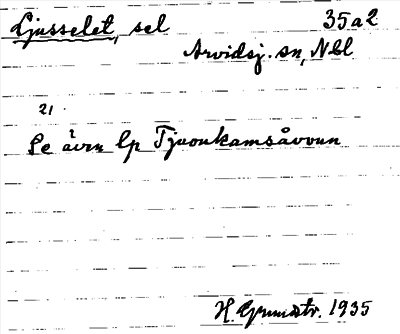 Ljusselet, sel 35a2
Arvidsj. sn, Nbl
21
Se även lp Tjuonkamsåvvun
H. Grundstr. 1935